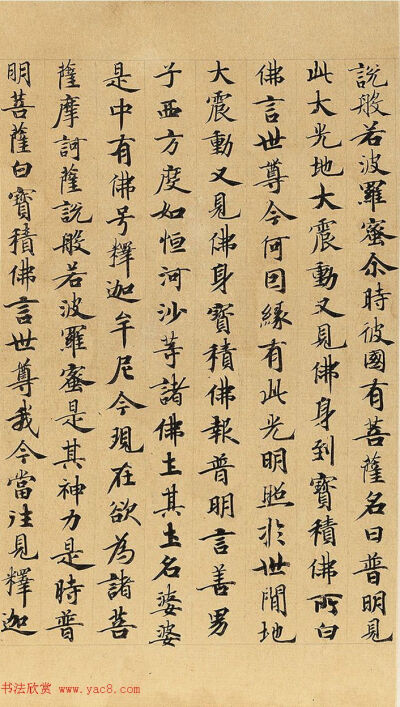 說般若波羅蜜尒時彼國有菩薩名曰普明見
此大光地大震動又見佛身到寶積佛所白
佛言世尊今何因緣有此光明照於世間地
大震動又見佛身寶積佛報普明言善男
子西方度如恒河沙等諸佛土其土名娑婆
是中有佛号釋迦牟尼今現在欲為諸菩
薩摩訶薩說般若波羅蜜是其神力是時普
明菩薩白寶積佛言世尊我今當往見釋迦
书法欣赏
www.yac8.com